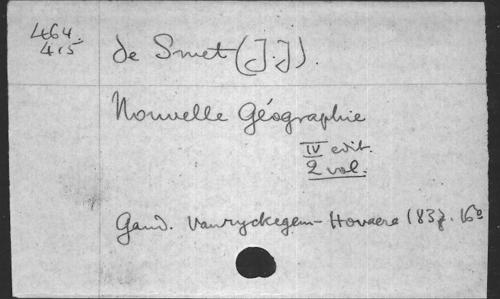 464.
415
de Smet (J.J).
Nouvelle Géographie
IV edit.
2 vol.
Gand. Vanryckegem-Hovaere 1837. 16º